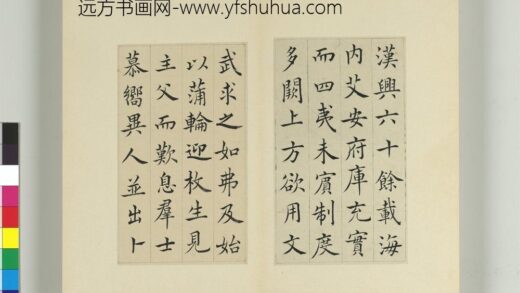 远方书画网-www.yfshuhua.com
漢興六十餘載海
内艾安府庫充實
而四夷未賓制度
多闕上方欲用文
武求之如弗及始
以蒲輪迎枚生見
主父而歎息羣士
慕嚮異人並出卜